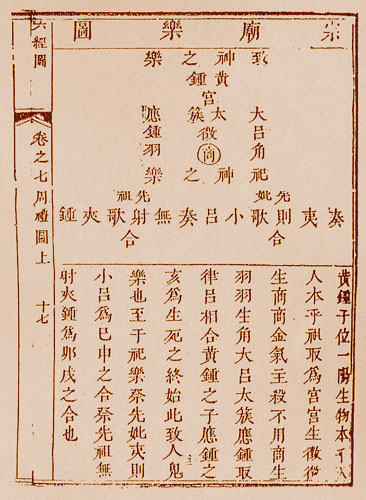 宗廟樂圖
致神之樂
黃鍾宮
大呂角
太簇徵
應鍾羽
商
祀神之樂
先妣
先祖
奏夷則歌小呂奏無射歌夾鍾
合
合
黃鍾子位一陽生物本于天
人本乎祖取爲宮宮生徵徵
生商商金氣主殺不用商生
羽羽生角大呂太簇應鍾取
律呂相合黃鍾之子應鍾之
亥爲生死之終始此致人鬼
樂也至于祀樂祭先妣夷則
小呂爲巳申之合祭先祖無
射夾鍾爲卯戌之合也
六經圖
卷之七周禮圖上
十七